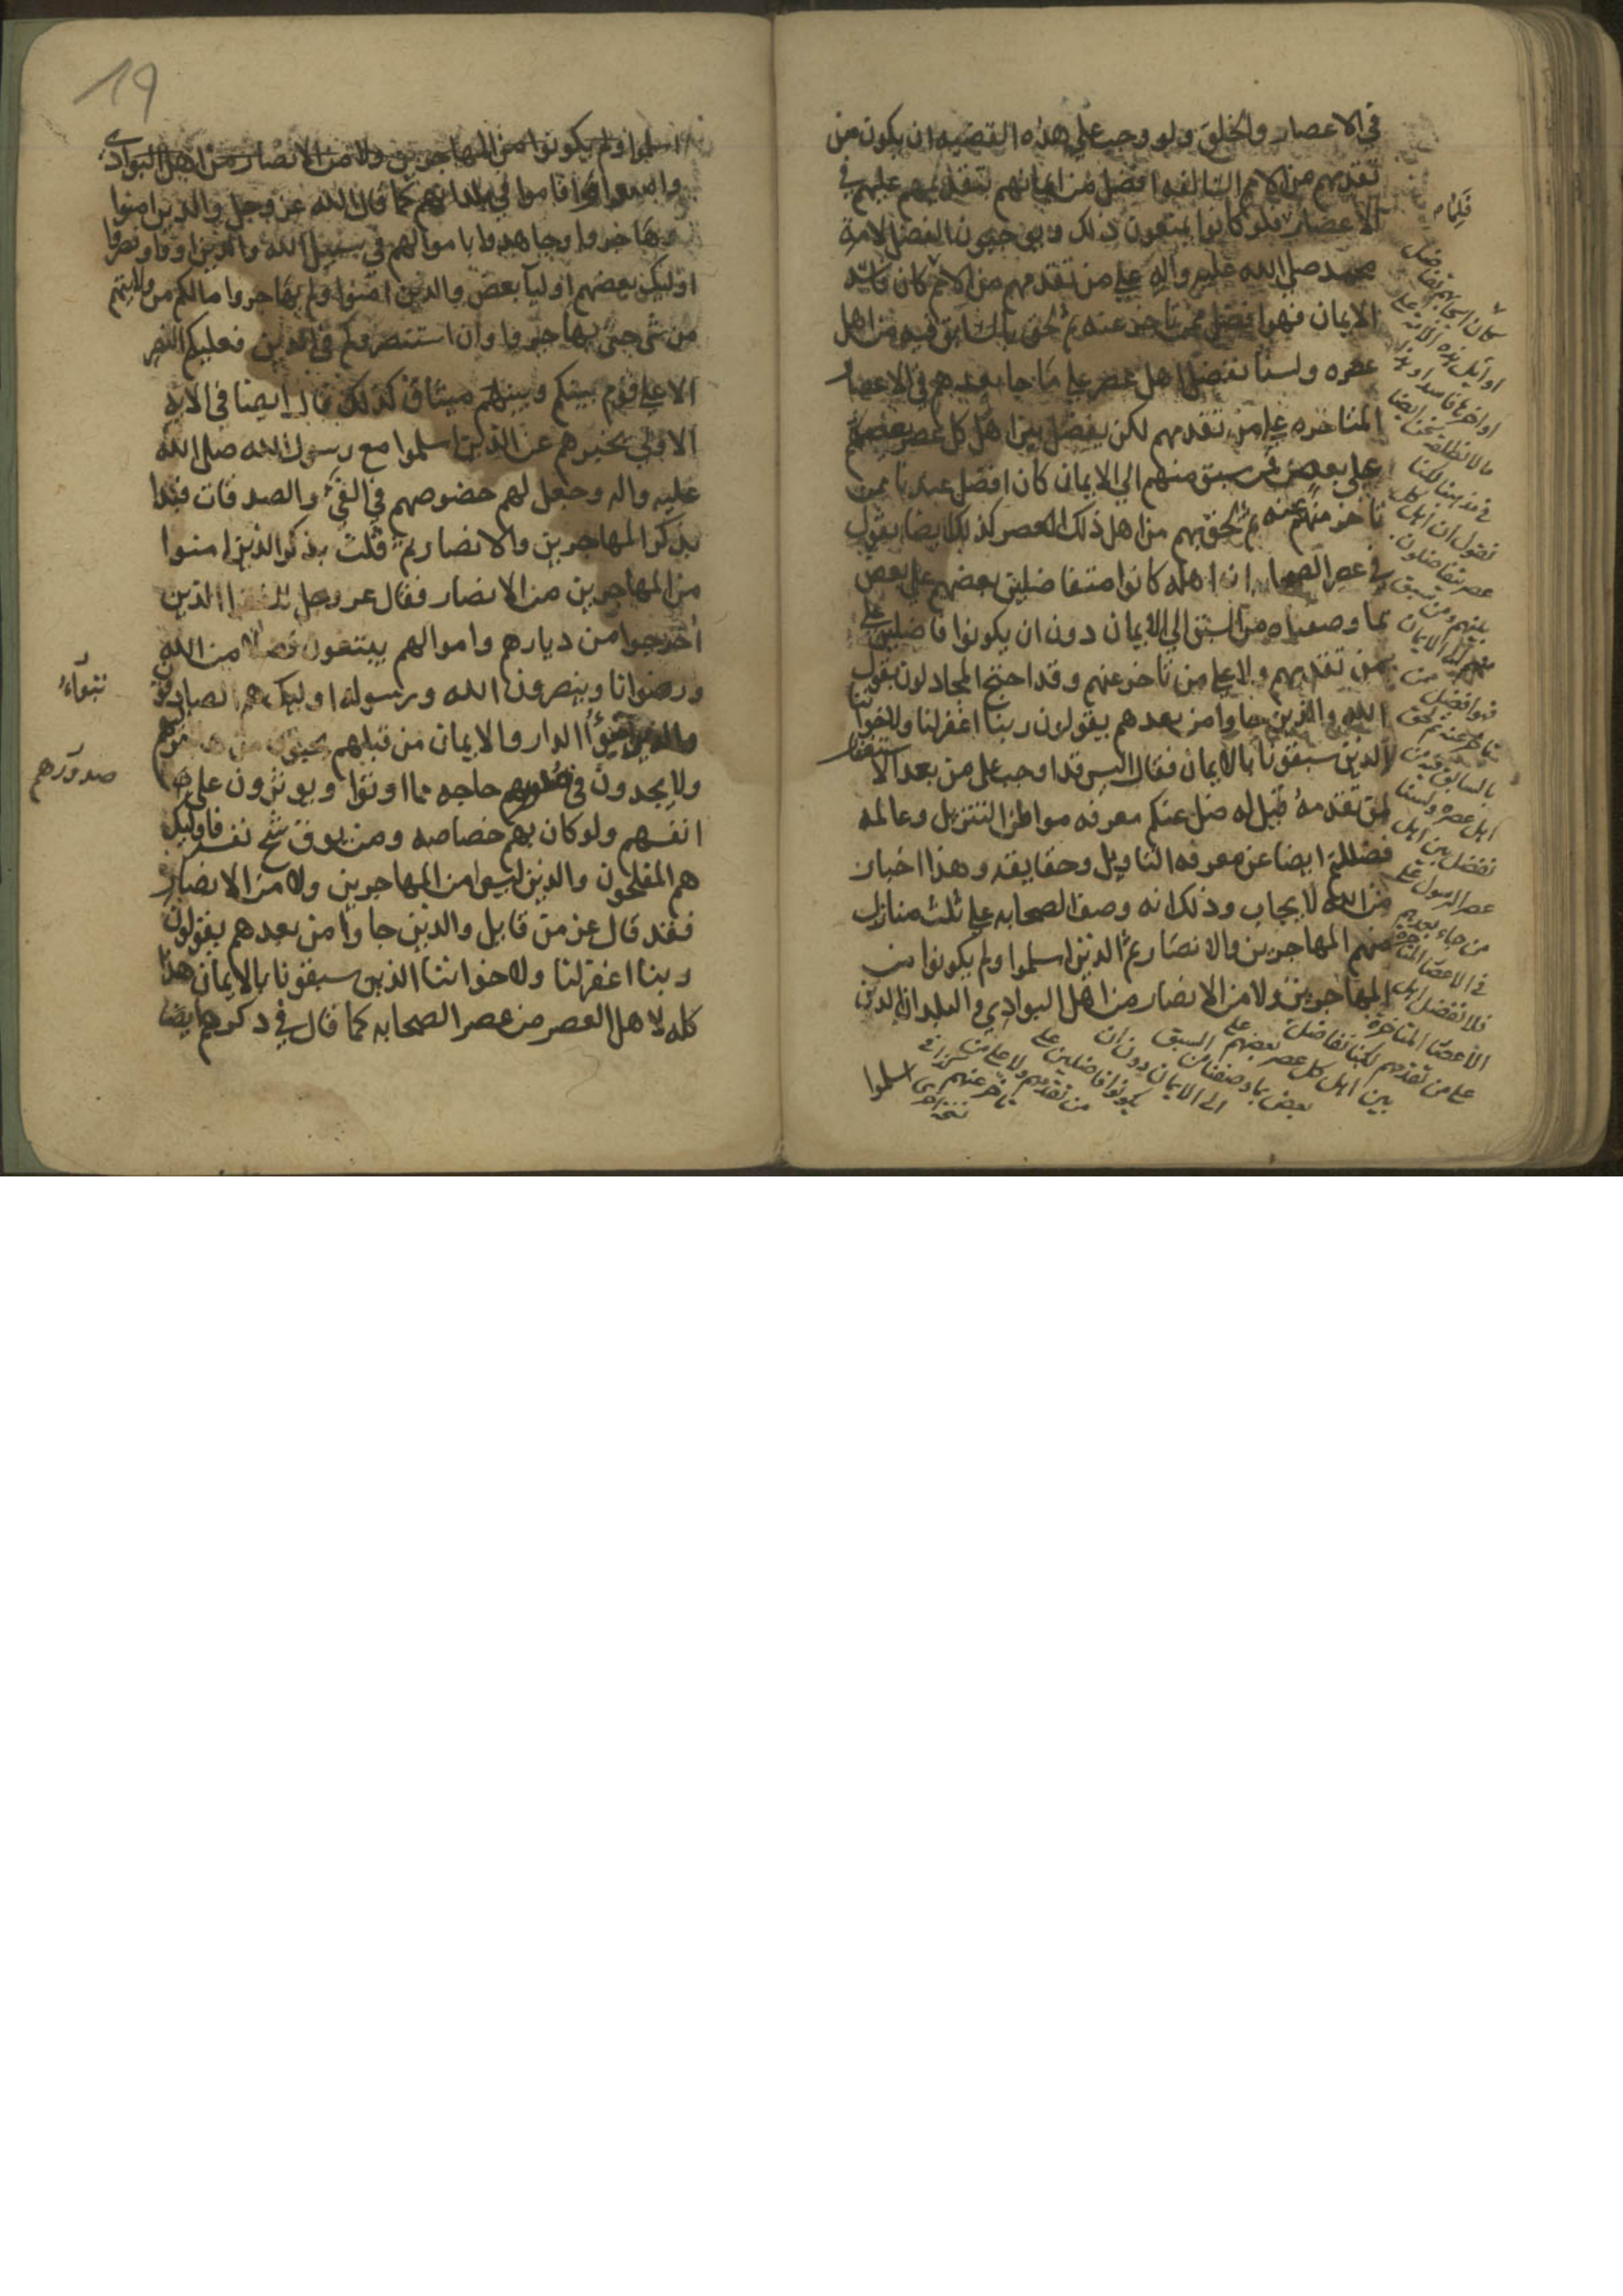 في الاعصار والخلق ولو وجب علي هذه القضيه ان يكون من
تقدمهم من الامم السالفه افضل من ايمانهم لتقدمهم عليهم في
الاعصار فلو كانوا يمنعون ذلك ويوجبون الفضل لامة
محمد صلي الله عليه واله علي من تقدمهم من الامم كان
الايمان فهو افضل ممن تاخر عنه ثم لحق بالسابق فيه من اهل
عصره ولسنا نفضل اهل عصر علي ما جا بعدهم في الاعصار
المتاخره علي من تقدمهم لكن يفضل بين اهل كل عصر بعضهم
علي بعض فمن سبق منهم الي الايمان كان افضل عندنا ممن
تاخر منهم عنه ثم لحق بهم من اهل ذلك العصر كذلك ايضا يقول
في عصر الصحابه ان اهله كانوا متفاضلين بعضهم علي بعض
بما وصفناه من السبق الي الايمان دون ان يكونوا فاضلين علي
من تقدمهم ولا علي من تاخر عنهم وقد احتج المجادلون بقول
الله والذين جاوا من بعدهم يقولون ربنا اغفرلنا ولاخواننا
الذين سبقونا بالايمان فقال اليس قد اوجب علي من بعد الاستغفار
لمن تقدمه قيل له ضل عنكم معرفه مواطن التنزيل وعالمه
فضللتم ايضا عن معرفه التاويل وحقايقه وهذا اخبار
من الله لا يجاب وذلك انه وصف الصحابه علي ثلث منازل
منهم المهاجرين والانصار ثم الذين اسلموا ولم يكونوا من
المهاجرين ولا من الانصار من اهل البوادي والبلدان الذين
فلما
كان ايمانهم تفاضل
اوايل هذه الامة علي
اواخرها فاسد او هذا
ما لا نطلقه نحن ايضا
في مذهبنا لكنا
نقول ان اهل كل
عصر يتفاضلون
بينهم ومن سبق
منهم الي الايمان
فهو افضل ممن
تاخر عنه ثم لحق
بالسابق فيه من
اهل عصره ولسنا
نفضل بين اهل
عصر الرسول علي
من جاء بعدهم
في الاعصار المتاخرة
فلا نفضل اهل
الاعصار المتاخرة
علي من تقدمهم لكنا نفاضل
بين اهل كل عصر بعضهم علي
بعض بما وصفنا من السبق
الي الايمان دون ان
يكونوا فاضلين علي
من تقدمهم ولا علي من
تاخر عنهم
نسخة اخري
اسلموا
19
اسلموا ولم يكونوا من المهاجرين ولا من الانصار من اهل البوادي
واقاموا في بلدانهم كما قال الله عز وجل والذين امنوا
وهاجروا وجاهدوا باموالهم في سبيل الله والذين اووا ونصروا
اوليك بعضهم اوليآ بعض والذين امنوا ولم يهاجروا مالكم من ولايتهم
من شي حتي يهاجروا وان استنصروكم في الدين فعليكم النصر
الا علي قوم بينكم وبينهم ميثاق كذلك قال ايضا في الاية
الاولي بخبرهم عن الذين اسلموا مع رسول الله صلي الله
عليه واله وجعل لهم خصوصهم في الفيء والصدقات فبدا
بذكر المهاجرين والانصار ثم ثلث بذكر الذين امنوا
من المهاجرين من الانصار فقال عز وجل للفقرا الذين
اخرجوا من ديارهم واموالهم يبتغون فضلا من الله
ورضوانا وينصرون الله ورسوله اوليك هم الصادقون
والذين تبوؤا الدار والايمان من قبلهم يحبون من هاجر اليهم
ولا يجدون في صدورهم حاجه مما اوتوا ويوثرون علي
انفسهم ولو كان بهم خصاصه ومن يوق شح نفسه فاوليك
هم المفلحون والذين ليسوا من المهاجرين ولا من الانصار
فقد قال عز من قايل والذين جاوا من بعدهم يقولون
ربنا اغفرلنا ولاخواننا الذين سبقونا بالايمان هذا
كله لاهل العصر من عصر الصحابه كما قال في ذكرهم ايضا
تبواء
صدورهم